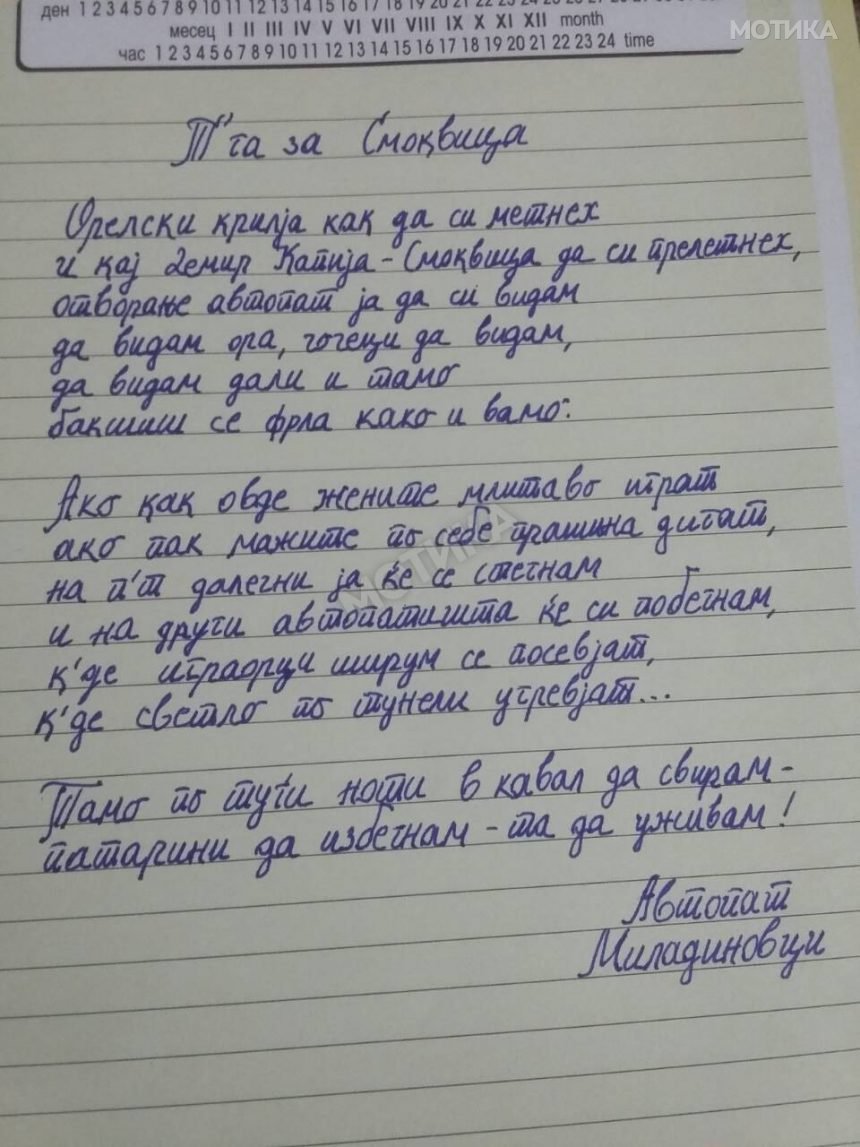 ден 1 2 3 4 5 6 7 8 9 10 11 12 13 14 15 16 17 18 19 20 21 22 23
месец I II III IV V VI VII VIII IX X XI XII month
час 1 2 3 4 5 6 7 8 9 10 11 12 13 14 15 16 17 18 19 20 21 22 23 24 time
МОТИКА
Т"га за Смоквица
Орелски крилја как да си метнех
и кај Демир Капија - Смоквица да си прелетнех,
отворање автопат ја да си видам
да видам ора, гочеци да видам,
да видам дали и тамо
бакшиш се фрла како и вамо.
Ако как овде жените млитаво играт
ако пак мажите по себе прашина дигат,
на п'т далечни ја ќе се стегнам
и на други автопатишта ќе си побегнам,
к'де играорци ширум се посевјат,
к'де светло по тунели угревјат...
МОТИКА
Тамо по туѓи ноти в кавал да свирам -
патарини да избегнам - та да уживам!
Автопат
Миладиновци